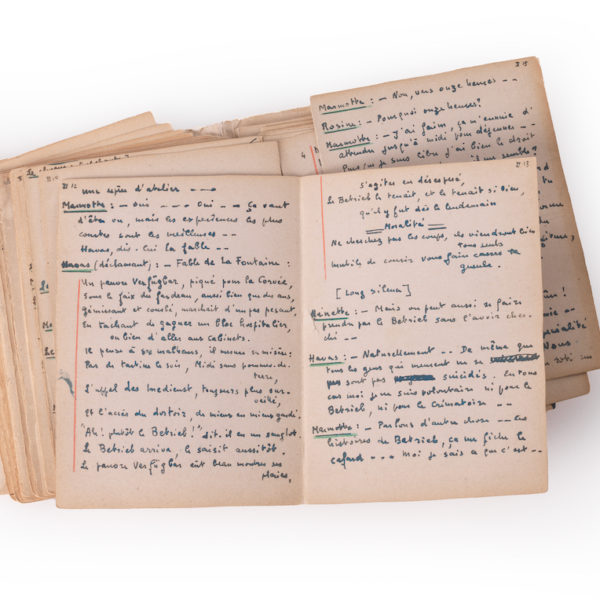 II 12
une espèce d'atelier ---
Marmotte : - Oui --- Oui -- Ça vaut
d'être vu, mais les expériences les plus
courtes sont les meilleures --
Havas, dis-lui la fable --
Havas (déclamant) : - Fable de La Fontaine :
Un pauvre Verfügbar, piqué pour la Corvée,
Sous le faix du fardeau, aussi bien que des ans,
gémissant et courbé, marchait d'un pas pesant.
En tâchant de gagner un bloc hospitalier,
ou bien d'aller aux Cabinets.
Il pense à ses malheurs, il
Pas de tartine le soir, Midi sans pommes-de-
terre,
L'appel des Inedienst, toujours plus sur-
veillé,
Et l'accès du dortoir, de mieux en mieux gardé.
"Ah! plutôt le Betrieb!" dit-il en un sanglot.
Le Betrieb arriva, le saisit aussitôt.
Le pauvre Verfügbar eût beau montrer ses
plaies,
II 13
S'agiter en désespéré,
Le Betrieb le tenait, et le tenait si bien,
qu'il y fut dès le lendemain
Moralité
Ne cherchez pas les coups, ils viendront bien
tous seuls
Inutile de courir vous faire casser la
gueule.
[Long silence]
Nénette : - Mais on peut aussi se faire
prendre par le Betrieb sans l'avoir cher-
ché --
Havas : - Naturellement -- De même que
tous les gens qui meurent ne se
sont pas suicidés. En tous
cas moi je ne suis volontaire ni pour le
Betrieb, ni pour le Crématoire --
Marmotte : - Parlons d'autre chose -- Les
histoires de Betrieb, ça me fiche le
cafard --- Moi je sais ce que c'est --
II 15
Marmotte : - Non, vers onze heures --
Rosine : - Pourquoi onze heures?
Marmotte : - J'ai faim, ça m'ennuie d'
attendre jusqu'à midi pour déjeuner --
je suis libre j'ai bien le droit
semble?